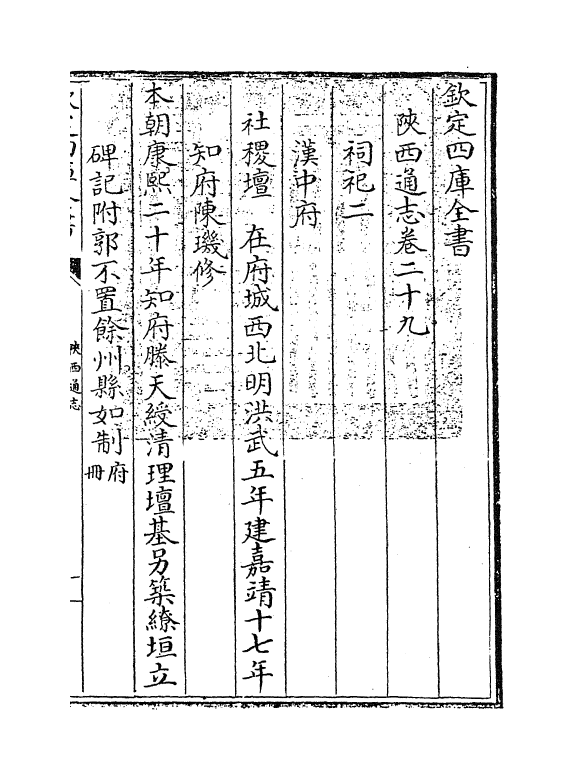 欽定四庫全書
陜西通志卷二十九
祠祀二
漢中府
社稷壇　在府城西北明洪武五年建嘉靖十七年
知府陳璣修
本朝康熙二十年知府滕天綬清理壇基另築繚垣立
碑記附郭不置餘州縣如制府冊
陜西通志